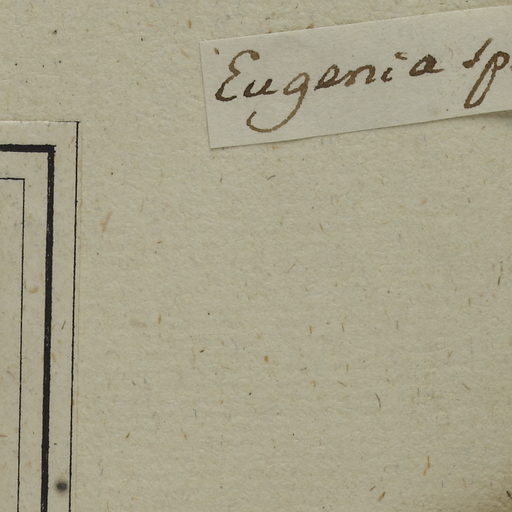 Eugenia sp.